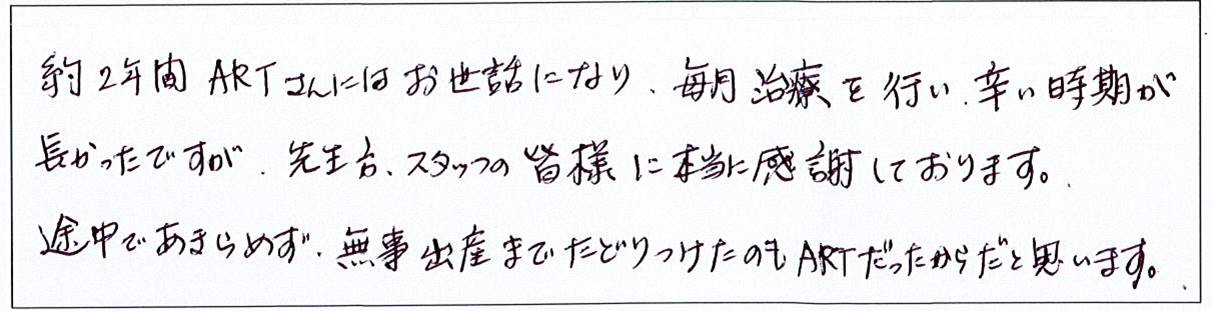 約2年間ARTさんにはお世話になり、毎月治療を行い、辛い時期が
長かったですが、先生方、スタッフの皆様に本当に感謝しております。
途中であきらめず、無事出産までたどりつけたのもARTだったからだと思います。